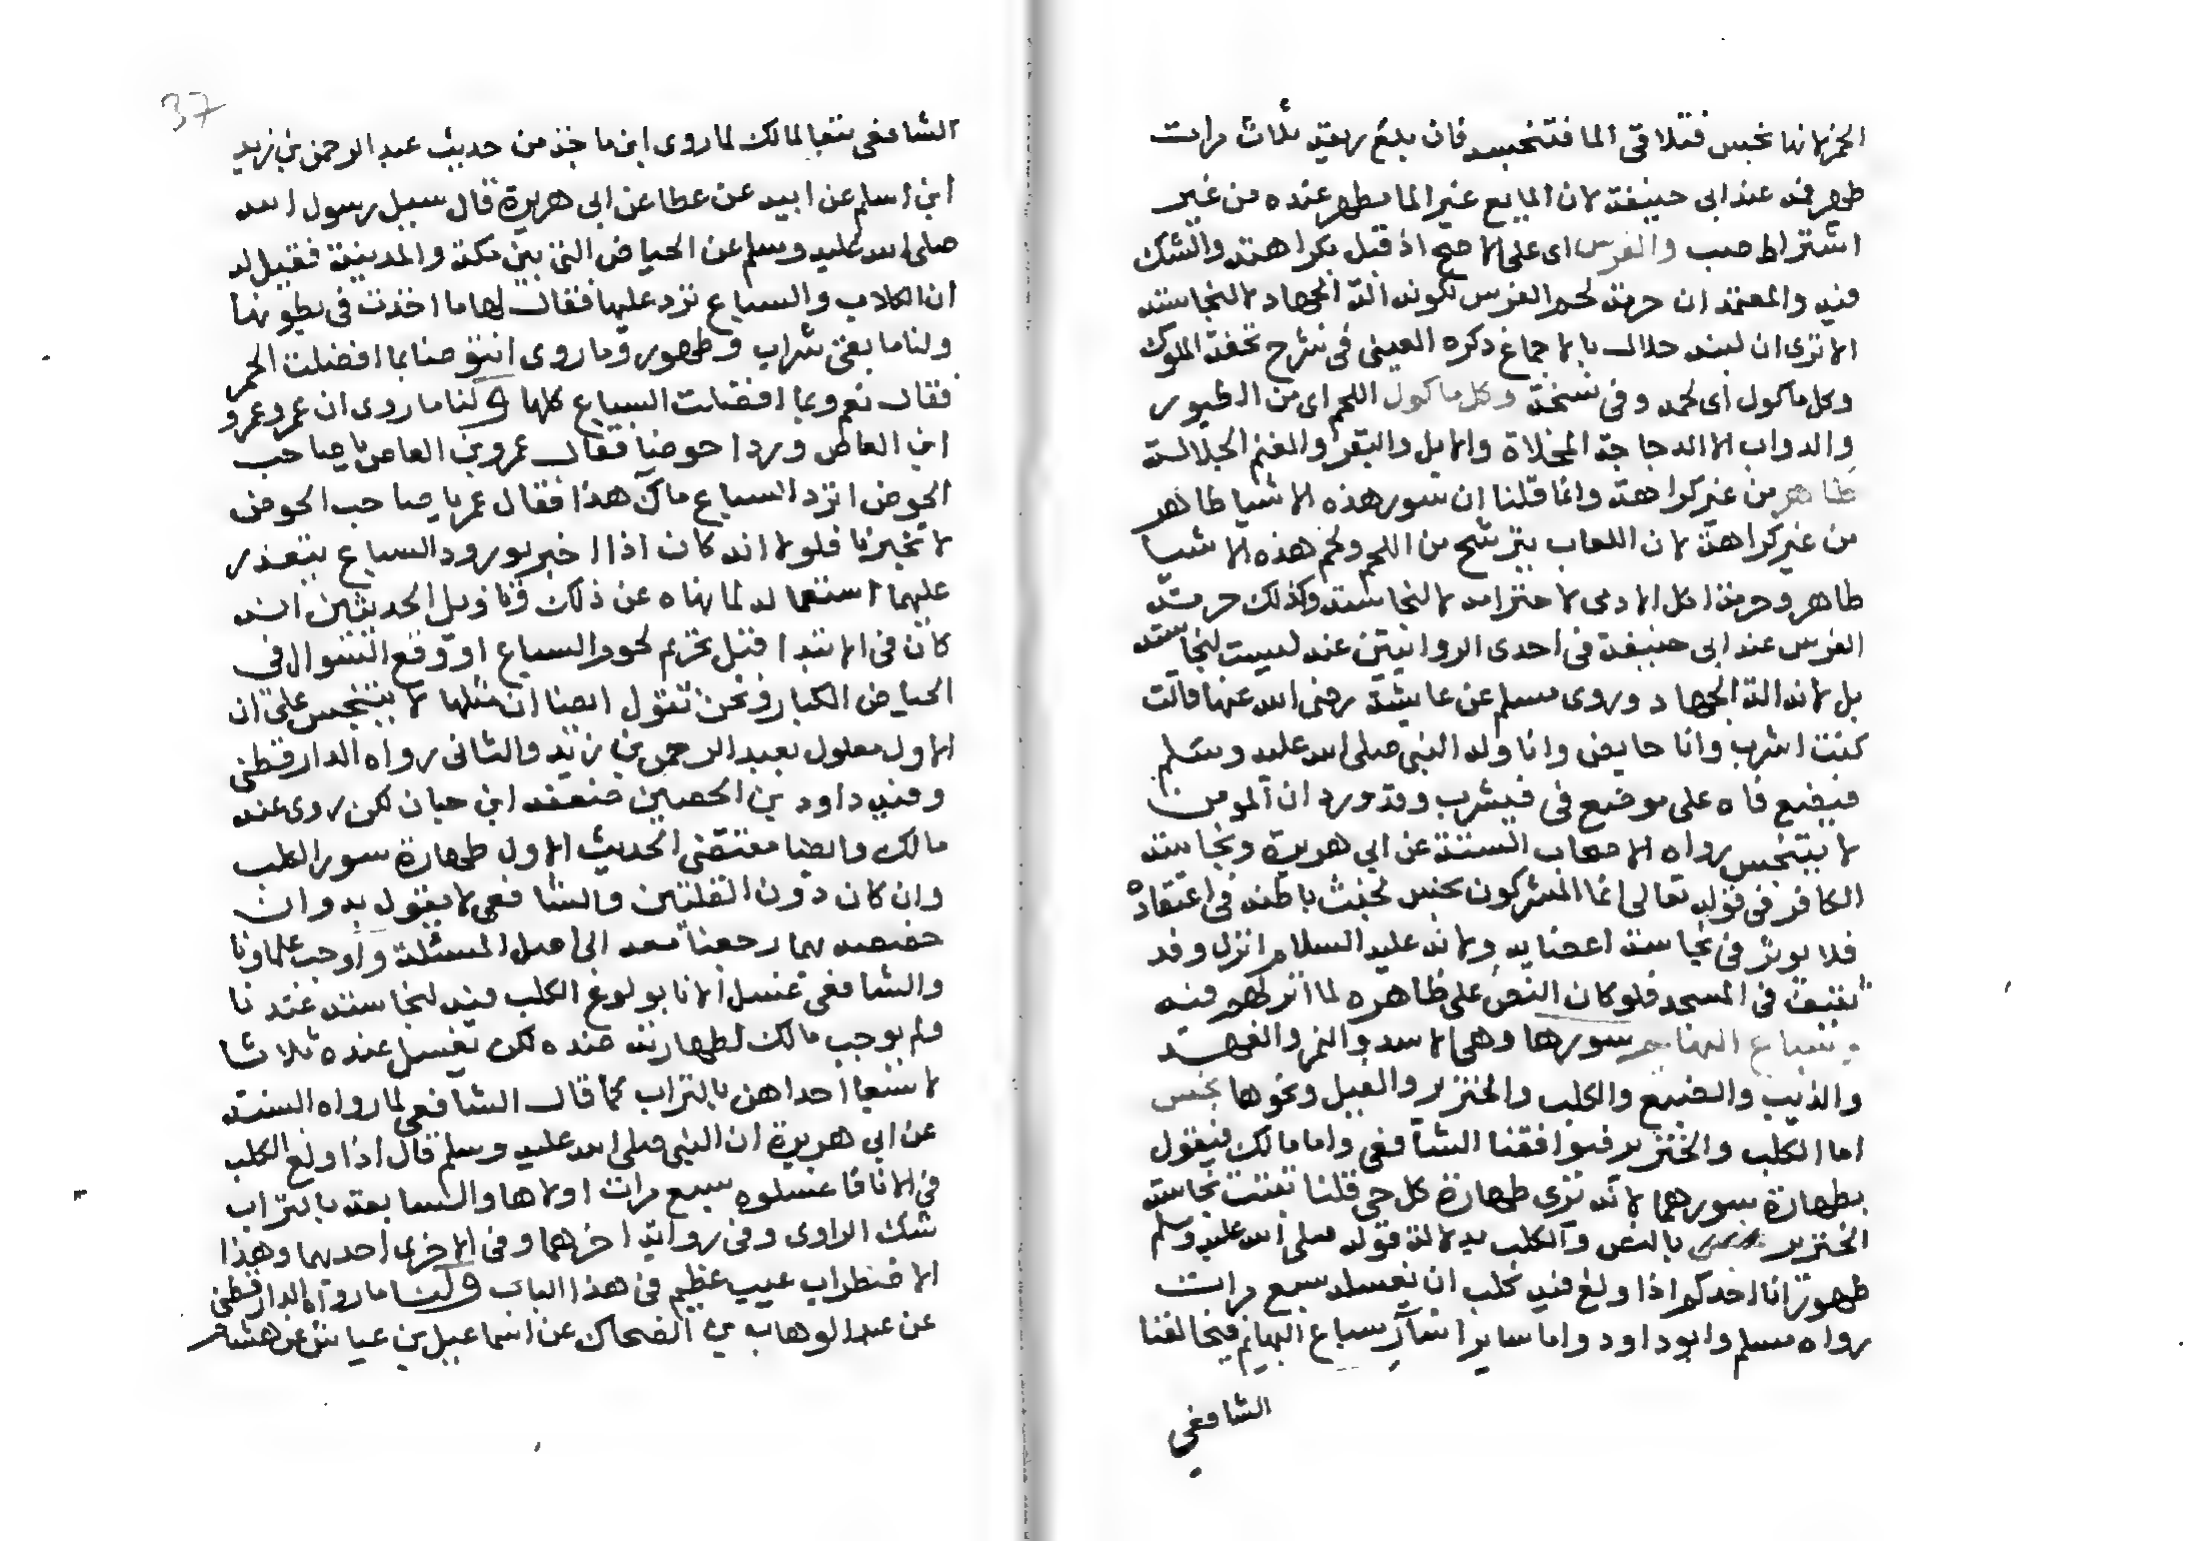 الخمر لانها نجس فتلاقى الما فتنجسه فان بلع ريقه ثلاث مرات
طهر فمه عند ابى حنيفة لان المايع غير الما مطهر عنده من غير
اشتراط صب والفرس اى على الاصح اذ قيل بكراهته والشك
فيه والمعتمد ان حرمة لحم الفرس لكونه الة الجهاد لا لنجاسته
الا ترى ان لبنه حلال بالاجماع ذكره العينى فى شرح تحفة الملوك
وكل ماكول اى لحمه وفى نسخة وكل ماكول اللحم اى من الطيور
والدواب الا الدجاجة المخلاة والابل والبقر والغنم الجلالة
طاهر من غير كراهة وانما قلنا ان سور هذه الاشيا طاهر
من غير كراهة لان اللعاب يترشح من اللحم ولحم هذه الاشيا
طاهر وحرمة اكل الادمى لاحترامه لا لنجاسته وكذلك حرمة
الفرس عند ابى حنيفة فى احدى الروايتين عنه ليست لنجاسته
بل لانه الة الجهاد وروى مسلم عن عايشة رضى الله عنها قالت
كنت اشرب وانا حايض وانا وله النبى صلى الله عليه وسلم
فيضع فاه على موضع فى فيشرب وقد ورد ان المومن
لا يتنجس رواه الاصحاب الستة عن ابي هريرة ونجاسة
الكافر فى قوله تعالى انما المشركون نجس لخبث باطنه فى اعتقاده
فلا يوثر فى نجاسة اعضايه ولانه عليه السلام انزل وفد
ثقيف فى المسجد فلو كان النص على ظاهره لما انزلهم فيه
وسباع البهايم سورها وهى الاسد والنمر والفهد
والذيب والضبع والكلب والخنزير والفيل ونحوها نجس
اما الكلب والخنزير فيوافقنا الشافعى واما مالك فيقول
بطهارة سورهما لانه يرى طهارة كل حى قلنا تثبت نجاسة
الخنزير بالنص والكلب بدلالة قوله صلى الله عليه وسلم
طهور انا احدكم اذا ولغ فيه كلب ان يغسله سبع مرات
رواه مسلم وابو داود واما ساير اسار سباع البهايم فيخالفنا
الشافعى
37
الشافعى تبعا لمالك لما روى ابن ماجة من حديث عبد الرحمن بن زيد
ابن اسلم عن ابيه عن عطا عن ابى هريرة قال سيل رسول الله
صلى الله عليه وسلم عن الحياض التى بين مكة والمدينة فقيل له
ان الكلاب والسباع ترد عليها فقال لها ما اخذت فى بطونها
ولنا ما بقى شراب وطهور وما روى انتوضا بما افضلت الحمر
فقال نعم وبما افضلت السباع كلها ولنا ما روى ان عمر وعمرو
ابن العاص وردا حوضا فقال عمرو بن العاص يا صاحب
الحوض اترد السباع ماك هذا فقال عمر يا صاحب الحوض
لا تخبرنا فلولا انه كان اذا اخبر بورود السباع يتعذر
عليهما استعماله لما نهاه عن ذلك وتاويل الحديثين انه
كان فى الابتدا قبل تحريم لحوم السباع او وقع السوال فى
الحياض الكبار ونحن نقول ايضا ان مثلها لا يتنجس على ان
الاول معلول بعبد الرحمن بن زيد والثانى رواه الدارقطنى
وفيه داود بن الحصين ضعفه ابن حبان لكن روى عنه
مالك وايضا مقتضى الحديث الاول طهارة سور الكلب
وان كان دون القلتين والشافعى لا يقول به وان
خصصه بهما رجعنا معه الى اصل المسئلة واوجب علماونا
والشافعى غسل الانا بولوغ الكلب فيه لنجاسته عندنا
ولم يوجب مالك لطهارته عنده لكن يغسل عنده ثلاثا
لا سبعا احداهن بالتراب كما قال الشافعى لما رواه الستة
عن ابي هريرة ان النبى صلى الله عليه وسلم قال اذا ولغ الكلب
فى الانا فاغسلوه سبع مرات اولاها والسابعة بالتراب
شك الراوى وفى رواية اخرهما وفى الاخرى احديهما وهذا
الاضطراب عيب عظيم فى هذا الباب ولنا ما رواه الدارقطنى
عن عبد الوهاب بن الضحاك عن اسماعيل بن عياش عن هشام